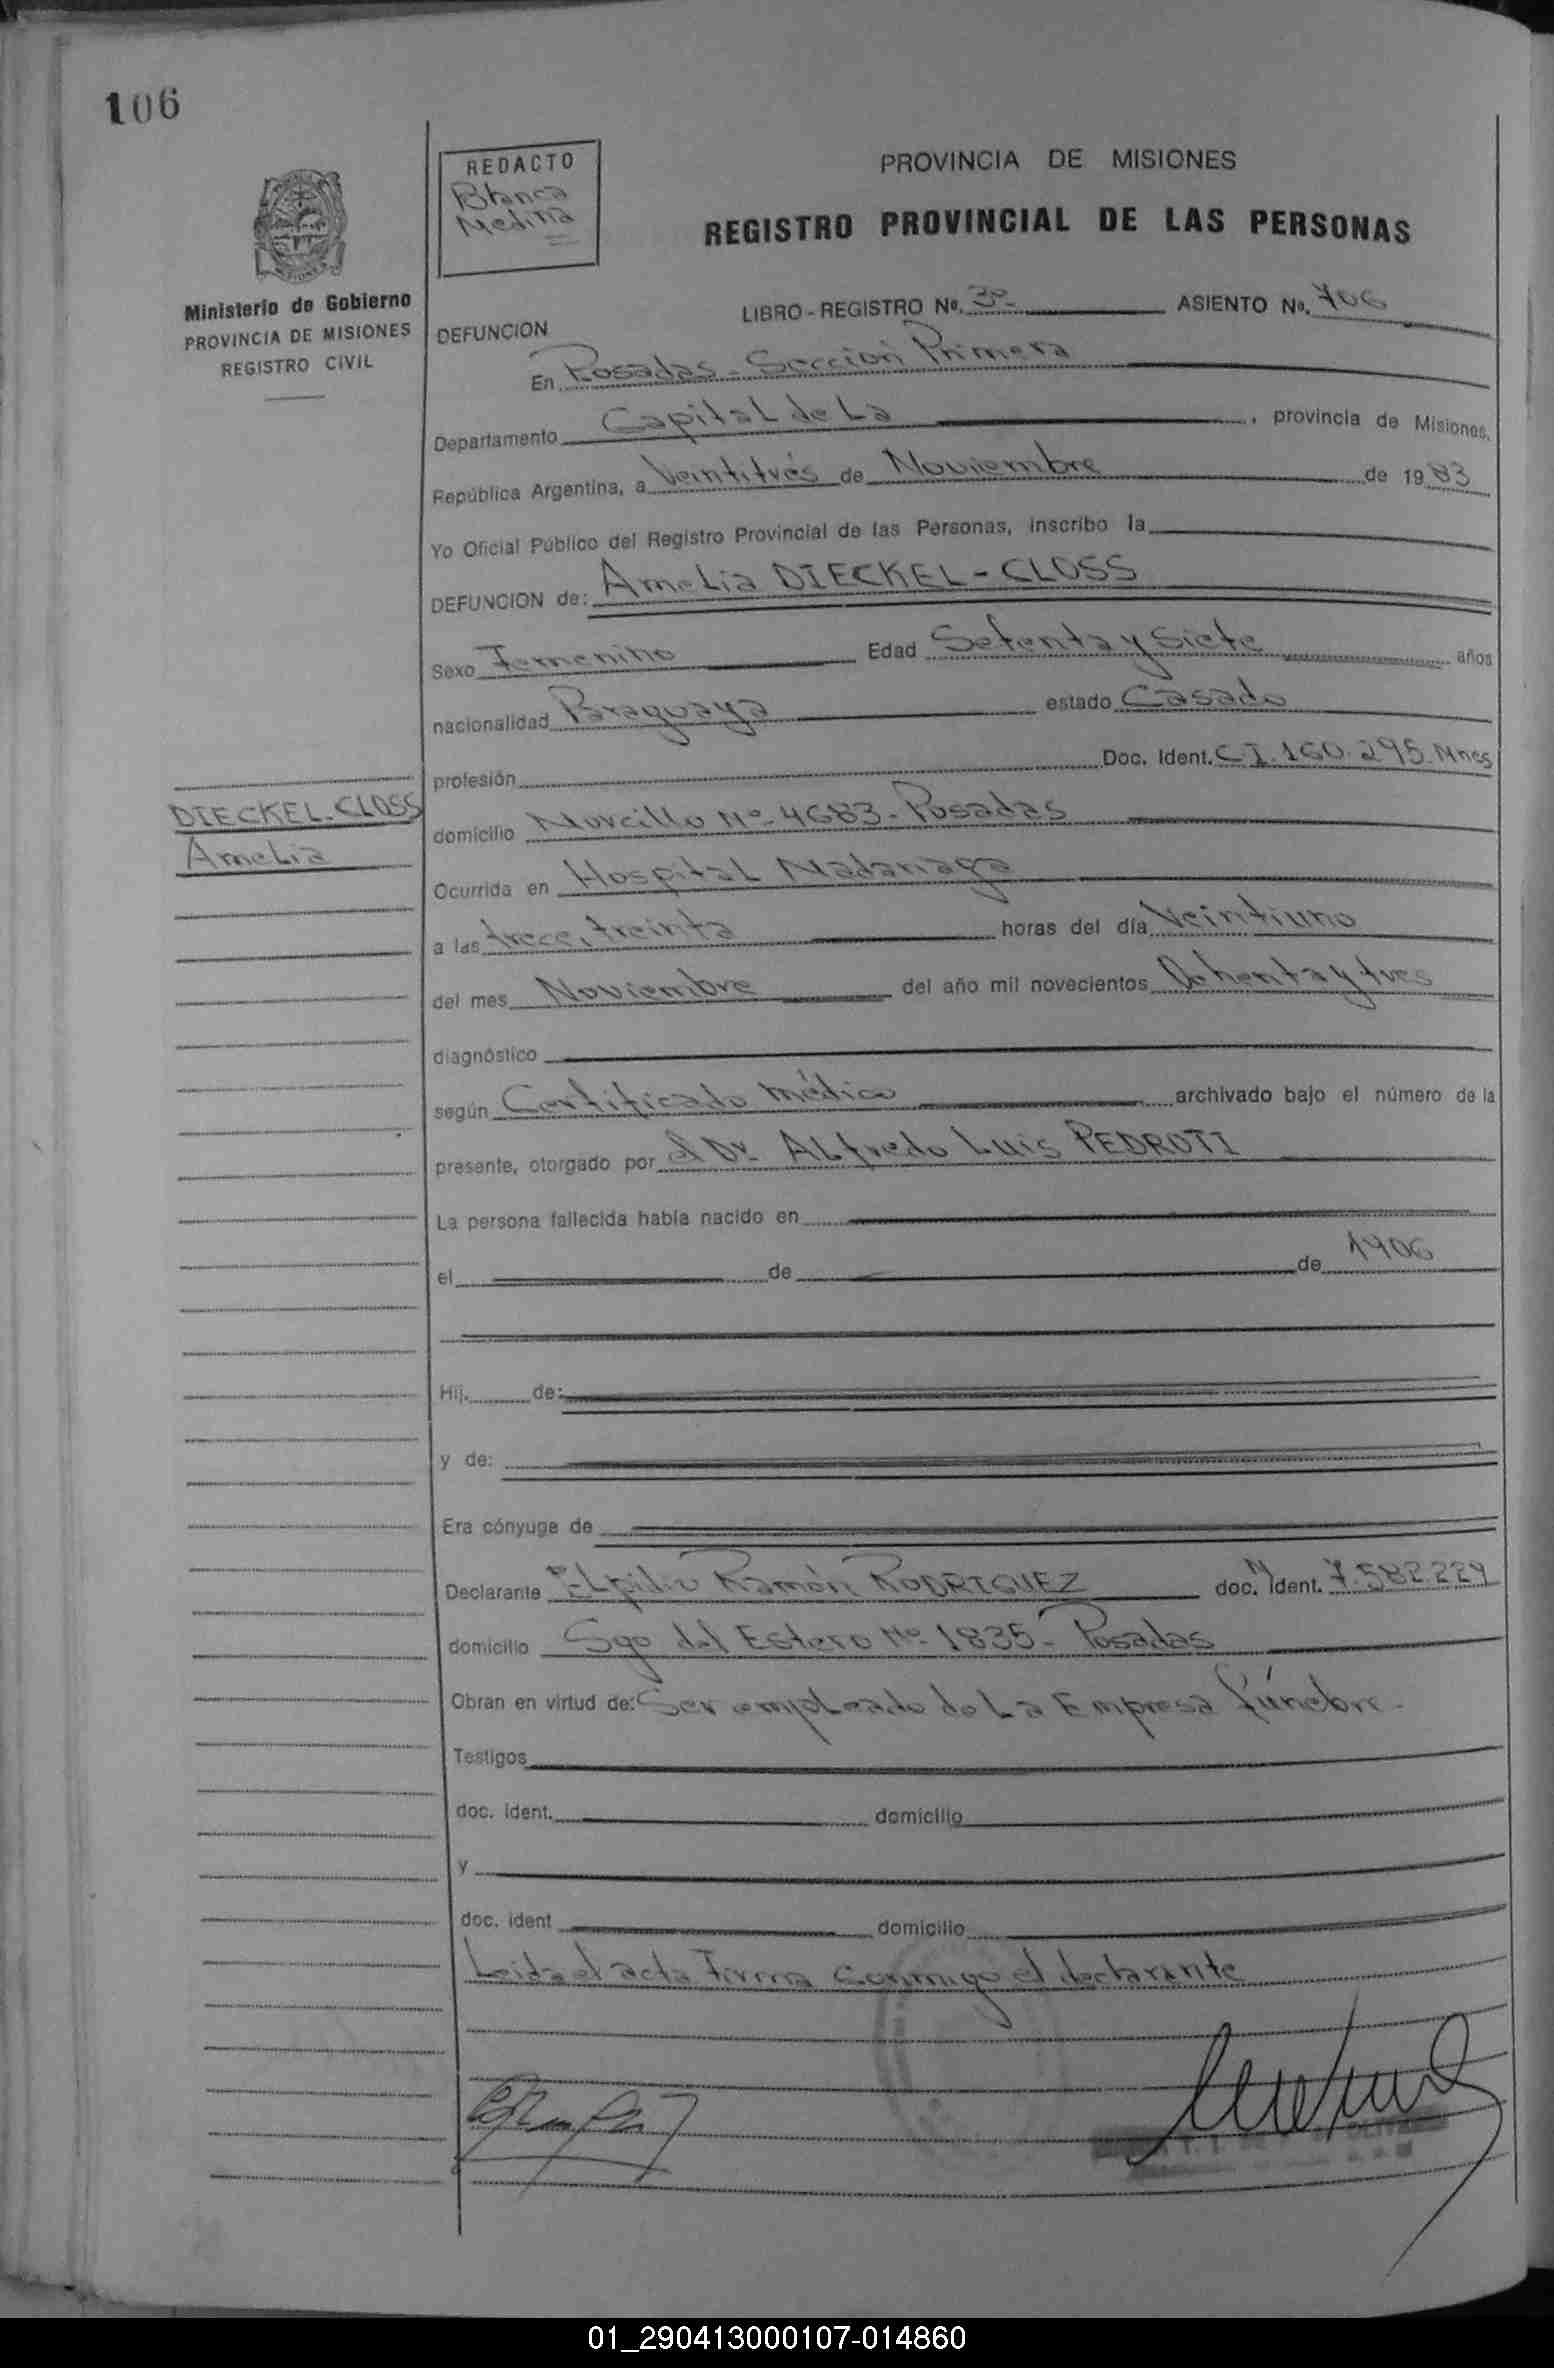 106
REDACTO
Blanca
Medina
PROVINCIA DE MISIONES
REGISTRO PROVINCIAL DE LAS PERSONAS
Ministerio de Gobierno
PROVINCIA DE MISIONES
REGISTRO CIVIL
LIBRO - REGISTRO Nº. 3º- ASIENTO Nº. 706
DEFUNCION
En Posadas - Sección Primera
Departamento Capital de La , provincia de Misiones,
República Argentina, a Veintitrés de Noviembre de 1983
Yo Oficial Público del Registro Provincial de las Personas, inscribo la
DEFUNCION de: Amelia DIECKEL - CLOSS
Sexo Femenino Edad Setenta y Siete años
nacionalidad Paraguaya estado Casado
profesión Doc. Ident. C.I. 160.295 Mnes
DIECKEL - CLOSS
Amelia
domicilio Nº 4683 - Posadas
Ocurrida en Hospital Madariaga
a las trece, treinta horas del día Veintiuno
del mes Noviembre del año mil novecientos Ochenta y tres
diagnóstico
según Certificado médico archivado bajo el número de la
presente, otorgado por el Dr. Alfredo Luis PEDROTI
La persona fallecida había nacido en
el de de 1906
Hij. de:
y de:
Era cónyuge de
Declarante Elpidio Ramón RODRIGUEZ doc. N Ident. 7.582.229
domicilio Sgo del Estero Nº 1835 - Posadas
Obran en virtud de: Ser empleado de La Empresa fúnebre -
Testigos
doc. Ident. domicilio
y
doc. ident domicilio
Leida el acta Firma conmigo el declarante
01_290413000107-014860